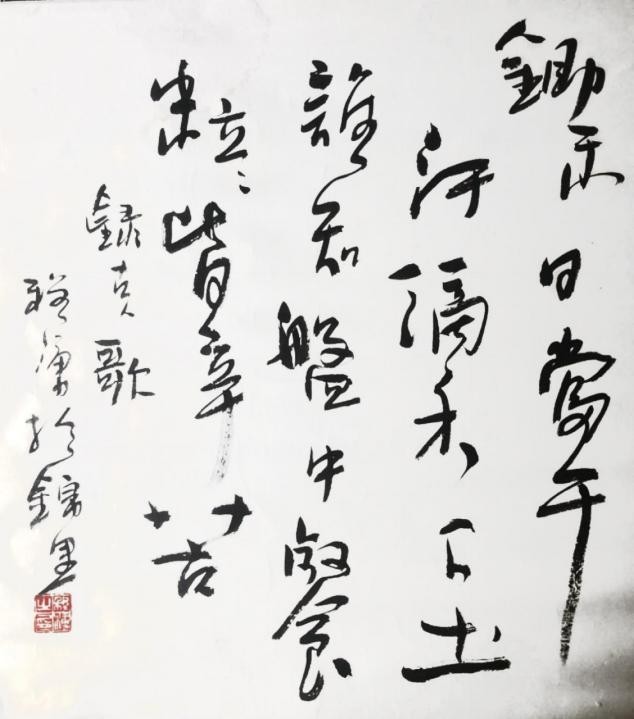 鋤禾日當午
汗滴禾下土
誰知盤中飱
粒粒皆辛苦
錄古歌
於錦里